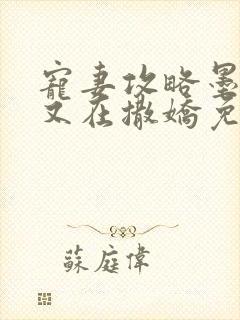 寵妻攻略墨
又在撒嬌免
蘇庭偉